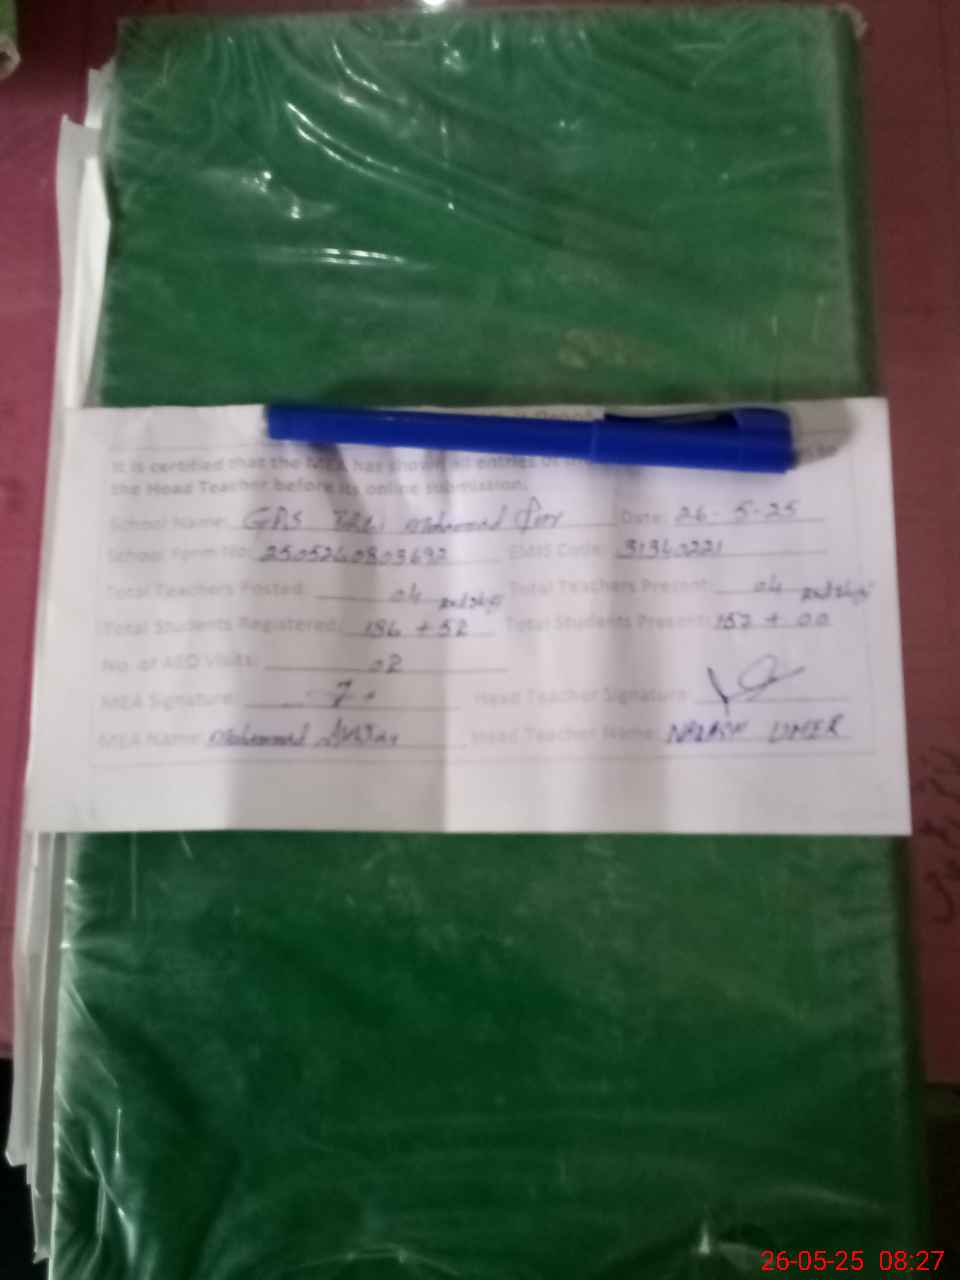 It is certified that the MEA has shown all entries of
the Head Teacher before its online submission.
School Name: GPS Mohammad Date: 26-5-25
School Form No: 2505260803692 EMIS Code: 31360221
Total Teachers Posted: 04 Total Teachers Present: 04
2nd shift 2nd shift
Total Students Registered: 186 + 52 Total Students Present: 157 + 00
No. of AEO Visits: 02
MEA Signature: Head Teacher Signature:
MEA Name: Mohammad Head Teacher Name: UMER
26-05-25 08:27